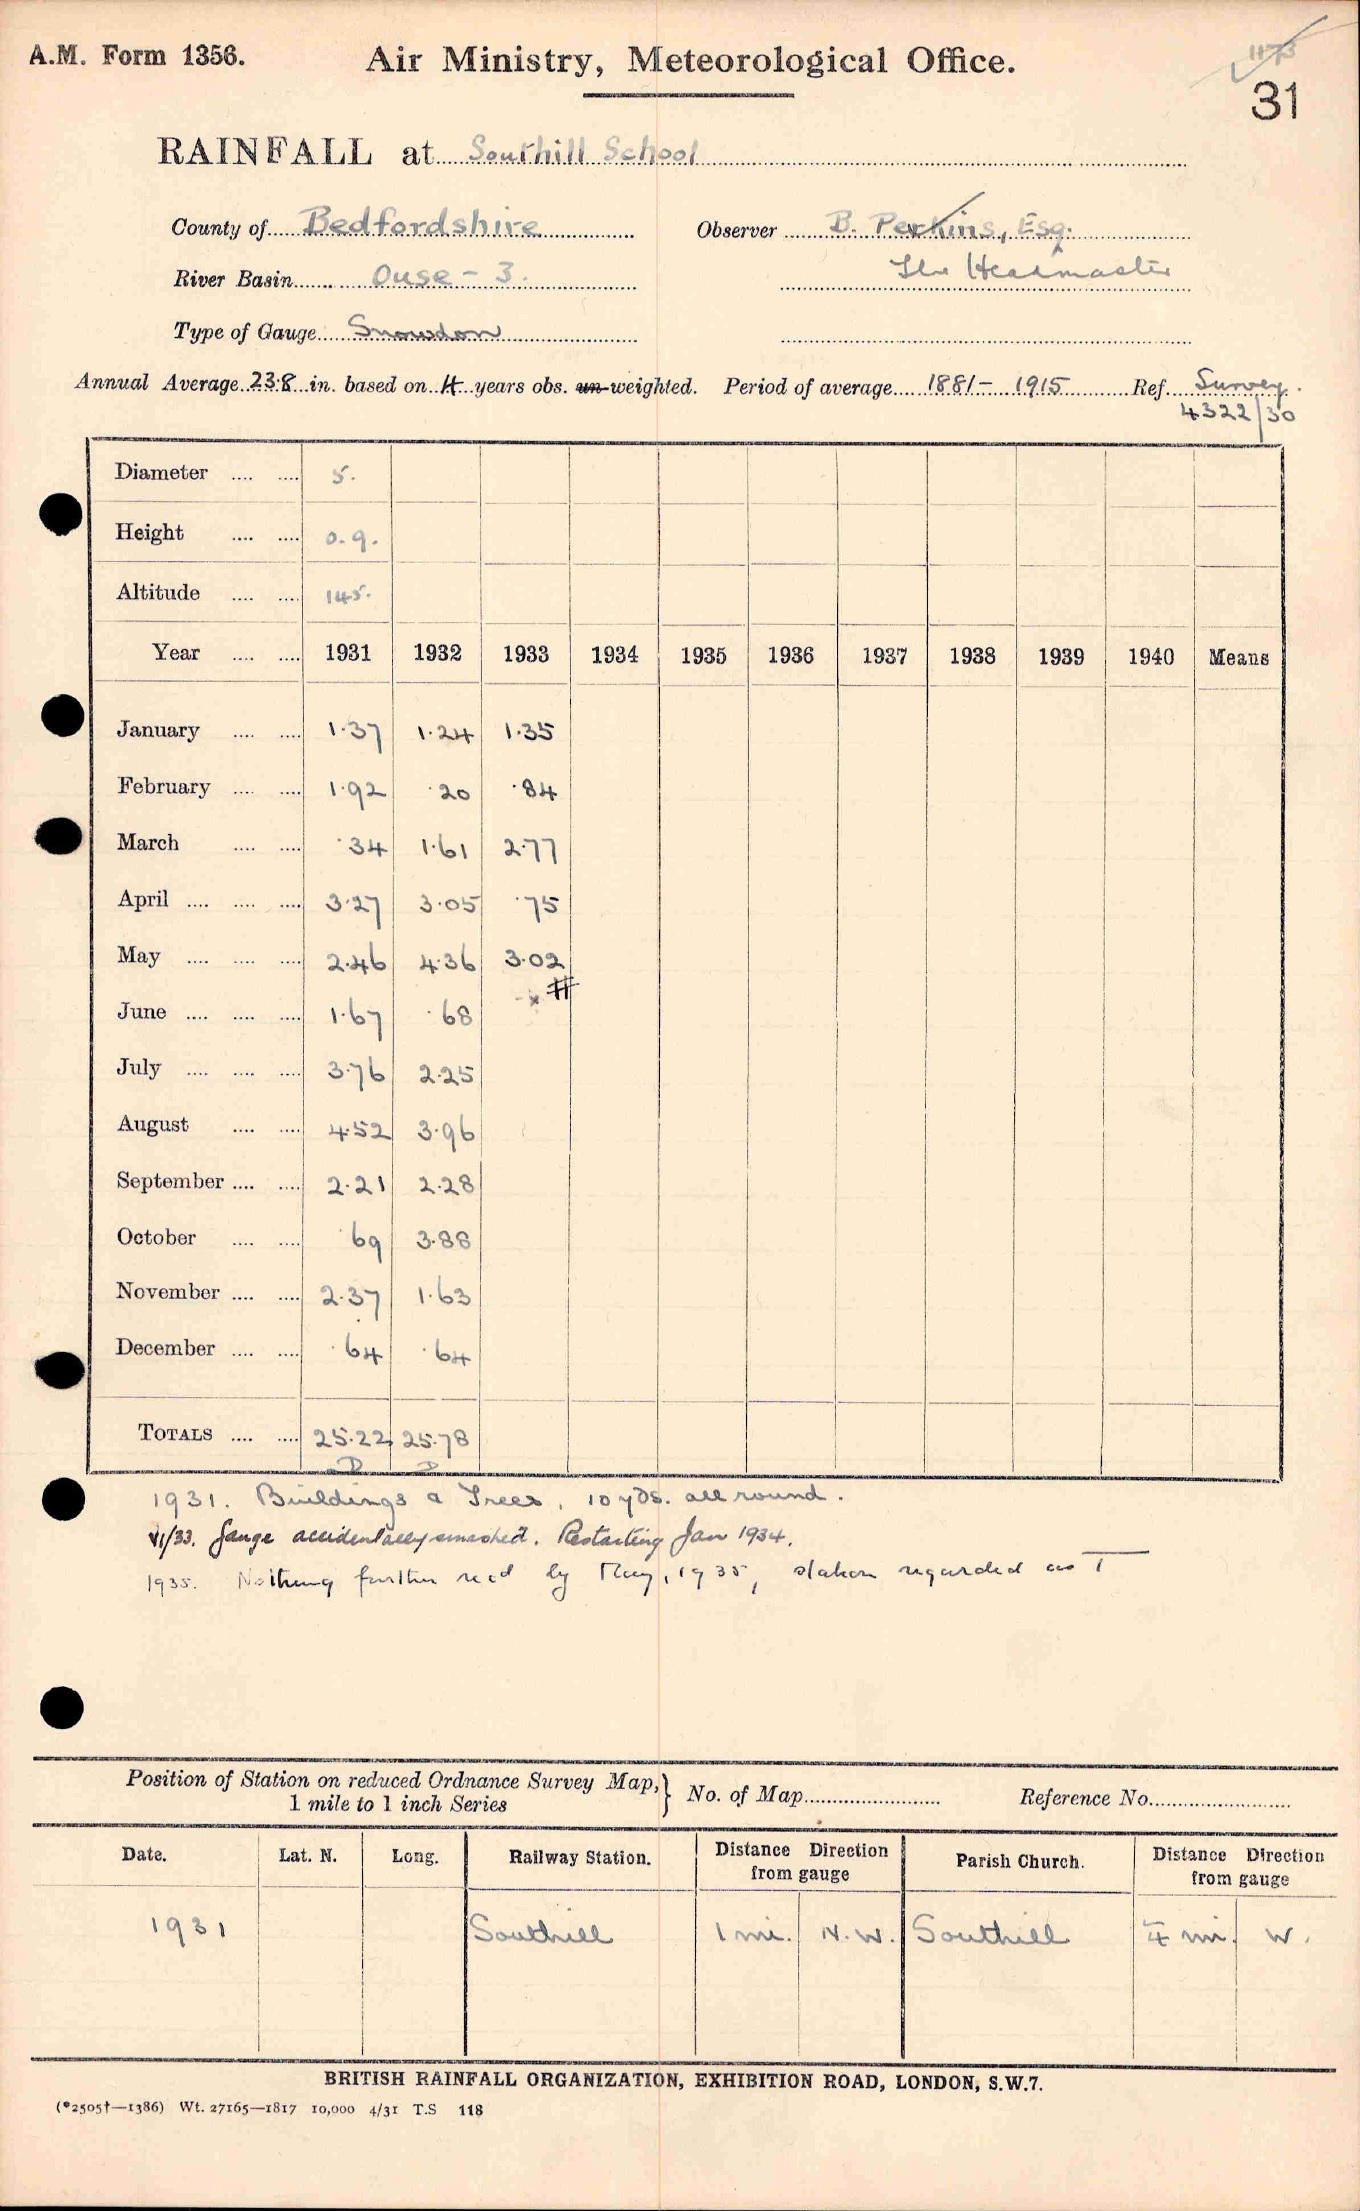 A.M. Form 1356.
Air Ministry, Meteorological Office.
1173
31
RAINFALL at Southill School
County of Bedfordshire
Observer B. Perkins, Esq.
River Basin Ouse - 3.
The Headmaster
Type of Gauge Snowdon
Annual Average 23.8 in. based on 4 years obs. un-weighted. Period of average 1881 - 1915 Ref. Survey.
4322/30
Diameter 5.
Height 0.9.
Altitude 145.
Year 1931 1932 1933 1934 1935 1936 1937 1938 1939 1940 Means
January 1.37 1.24 1.35
February 1.92 .20 .84
March .34 1.61 2.77
April 3.27 3.05 .75
May 2.46 4.36 3.02
June 1.67 .68 x #
July 3.76 2.25
August 4.52 3.96
September 2.21 2.28
October .69 3.88
November 2.37 1.63
December .64 .64
TOTALS 25.22 25.78
D D
1931. Buildings & Trees, 10 yds. all round.
VI/33. Gauge accidentally smashed. Restarting Jan 1934.
1935. Nothing further recd by May, 1935, station regarded as T
Position of Station on reduced Ordnance Survey Map, } No. of Map Reference No.
1 mile to 1 inch Series
Date. Lat. N. Long. Railway Station. Distance Direction from gauge Parish Church. Distance Direction from gauge
1931 Southill 1 mi. N.W. Southill ¼ mi. W.
BRITISH RAINFALL ORGANIZATION, EXHIBITION ROAD, LONDON, S.W.7.
(*2505†—1386) Wt. 27165—1817 10,000 4/31 T.S 118